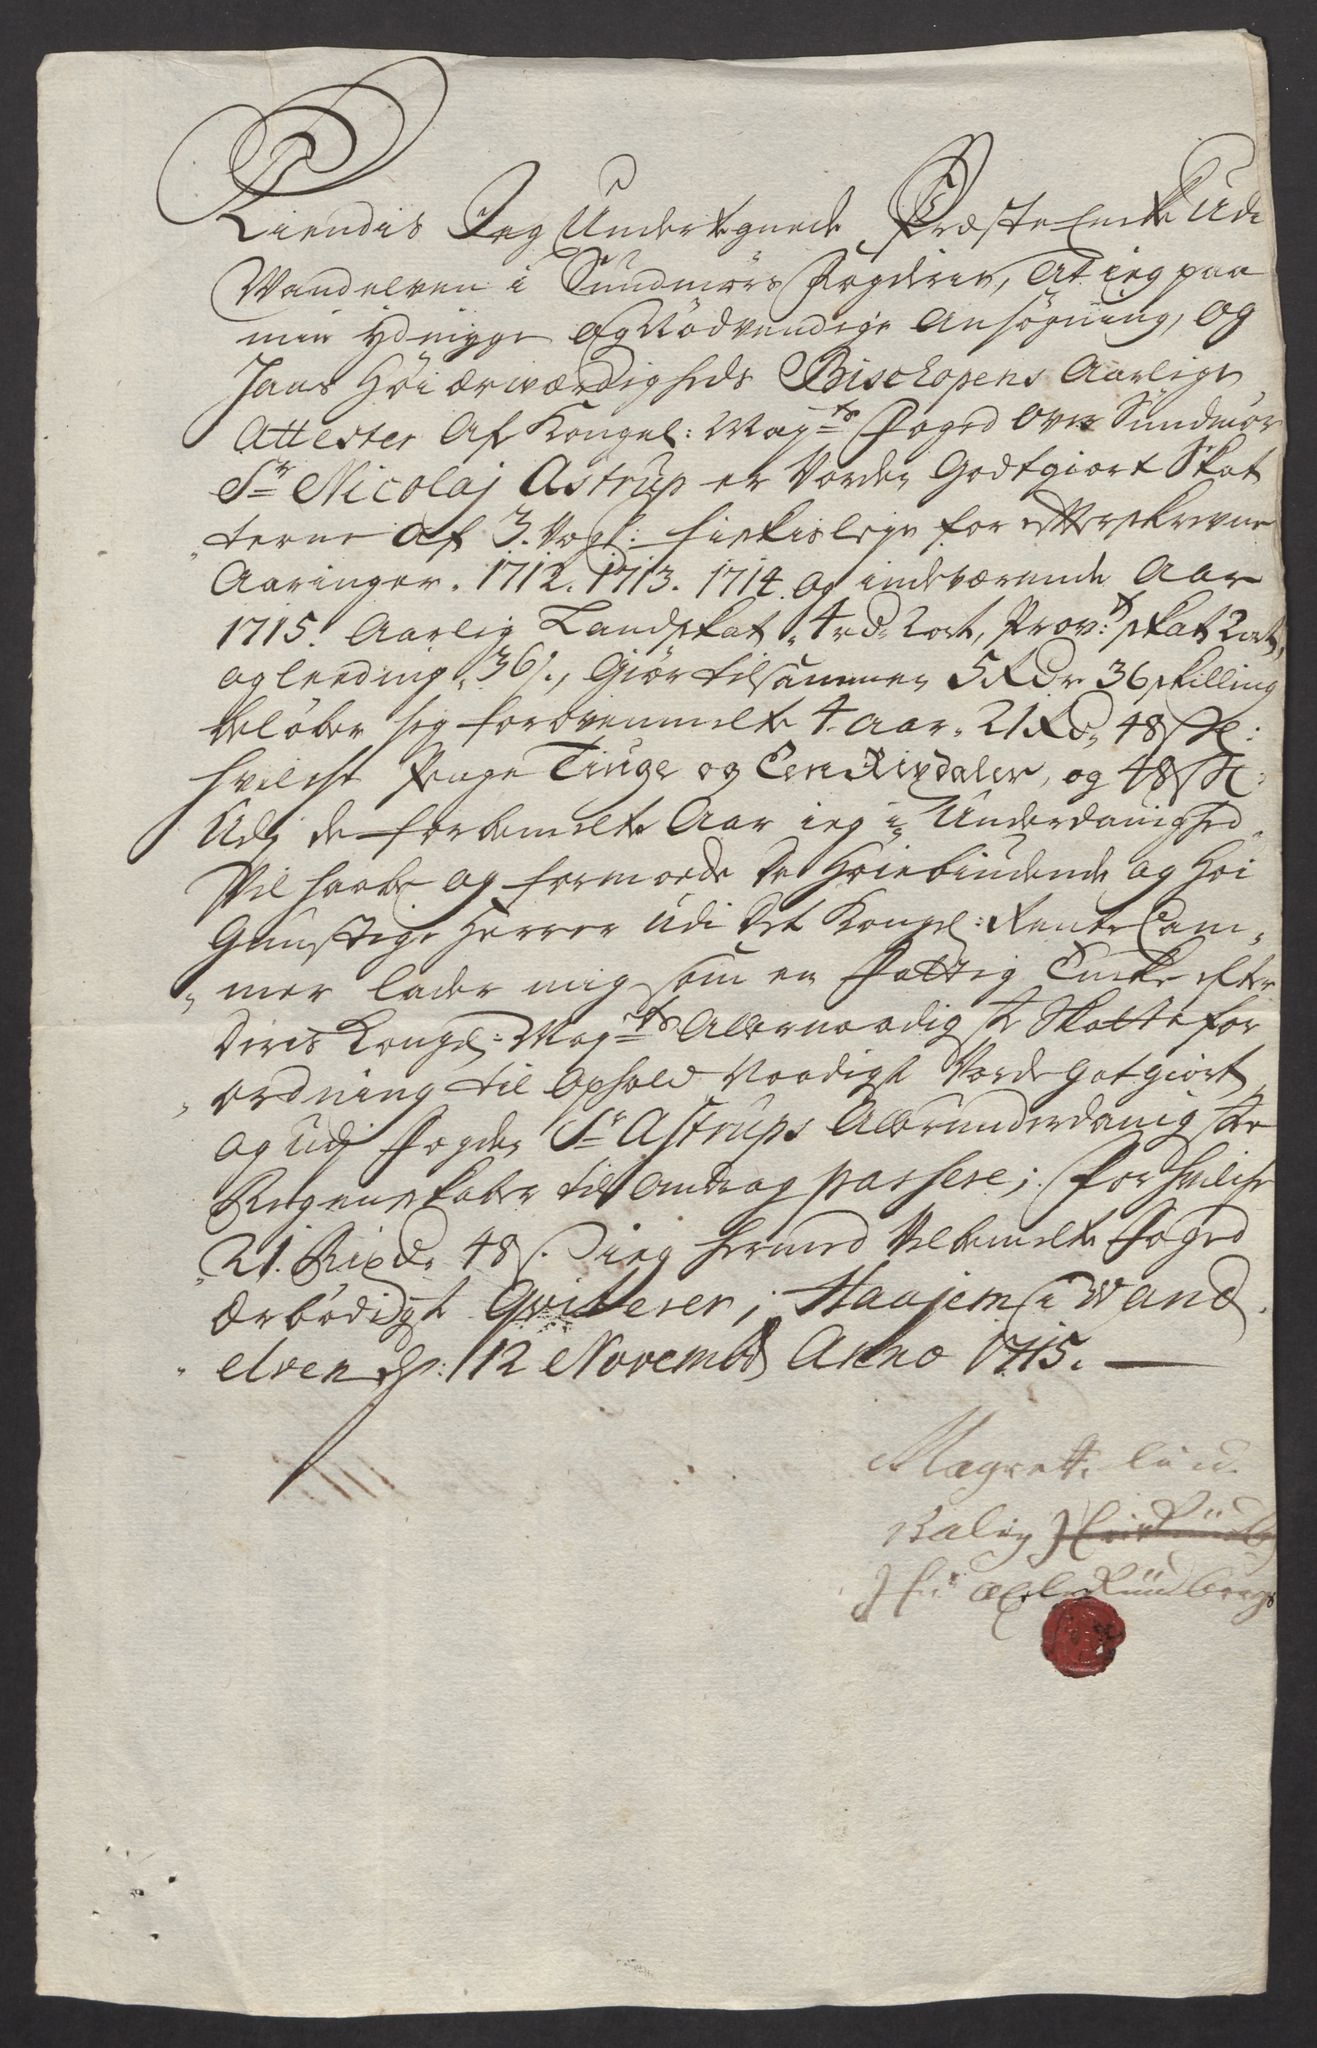 Kiendis Jeg Undertegnede Præste Encke Udi
Wandelven i Sundmørs Fogderie, At ieg paa
min ydmyge og Nødvendige Ansøgning, og
Hans Høi ærværdigheds Bischopens Aarlige
Attester Af Kongel: May:ts Foged over Sundmør
Sr Nicolaj Astrup er Vorden Godtgiort Skat
terne af 3. Vog: fiskis leje for efterskrevne
Aaringer. 1712. 1713. 1714. og indeværende Aar
1715. Aarlig Landskat 4 rd 2 ort, Prov: skat 2 ort,
og leeding 36 s., Giør tilsammen 5 Rdr 36 skilling
beløber sig for ovenmelte 4 Aar. 21 Rd 48 sk:
hvilche Penge Tiuge og Een Rixdaler, og 48 sk:
Udj de forbemelte Aar ieg i Underdanighed
Vil haabe og formoede De Høiebiudende og Høi
Gunstige Herrer Udi Det Kongel: Rente Cam
mer lader mig som en Fattig Encke efter
Deris Kongel: May:ts Allernaadigste Skatte for
ordning til Ophold Naadigst Vorde gotgiort
og udj Fogden Sr Astrups Allerunderdanigste
Regenskaber til Andrag passere; for hvilche
21. Rixdr 48 s. ieg hermed Velbemelte Foged
ærbødigst Qviterer; Haajem i Wand
elven d: 12 Novembr Anno 1715.
Magrett. lund
Salig
H: axel Rüdbergs